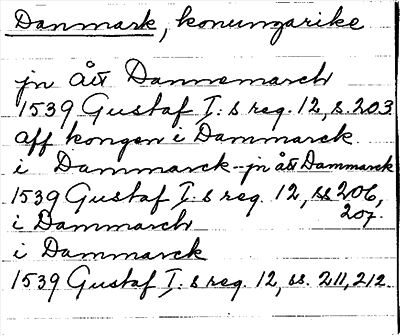 Danmark, konungarike
jn ått Dannemarch
1539 Gustaf I:s reg. 12, s. 203.
aff kongen i Dammarck
i Dammarck - jn ått Dammarck
1539 Gustaf I:s reg. 12, ss 206, 207.
i Dammarch
i Dammarck
1539 Gustaf I:s reg. 12, ss. 211, 212.